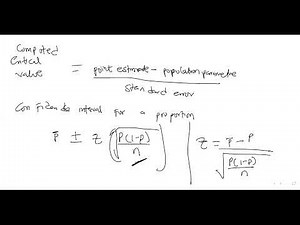 Computed
Critical
value = point estimate - population parametre
standard error
Confidende interval for a proportion
P̅ ± Z (√(P(1-P)/n)) | Z = (P̅ - P)/√(P(1-P)/n)